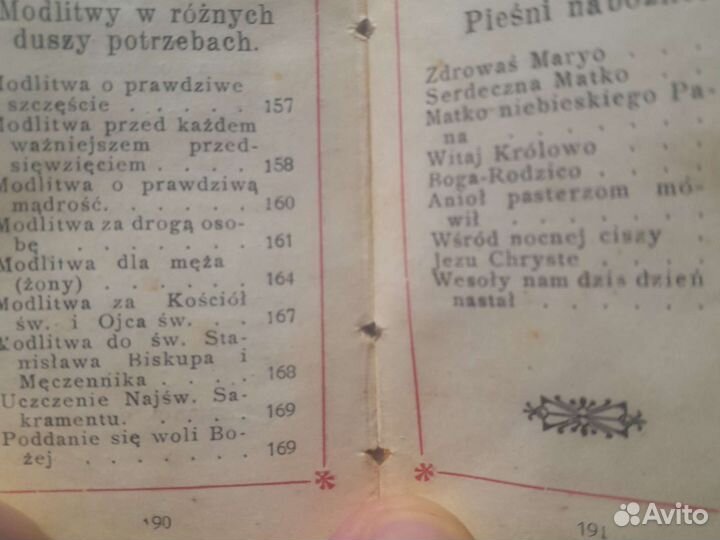 Modlitwy w różnych
duszy potrzebach.
Modlitwa o prawdziwe
szczęście . . . . . 157
Modlitwa przed każdem
ważniejszem przed-
sięwzięciem . . . . 158
Modlitwa o prawdziwą
mądrość. . . . . . 160
Modlitwa za drogą oso-
bę . . . . . . . 161
Modlitwa dla męża
(żony) . . . . . . 164
Modlitwa za Kościół
św. i Ojca św. . . 167
Modlitwa do św. Sta-
nisława Biskupa i
Męczennika . . . . 168
Uczczenie Najśw. Sa-
kramentu. . . . . 169
Poddanie się woli Bo-
żej . . . . . . . 169
190
Pieśni
Zdrowaś Maryo . . . .
Serdeczna Matko . . .
Matko niebieskiego Pa-
na . . . . . . .
Witaj Królowo . . . .
Boga-Rodzico . . . .
Anioł pasterzom mó-
wił . . . . . . .
Wśród nocnej ciszy .
Jezu Chryste . . . .
Wesoły nam dzis dzień
nastał . . . . . .
191
Avito